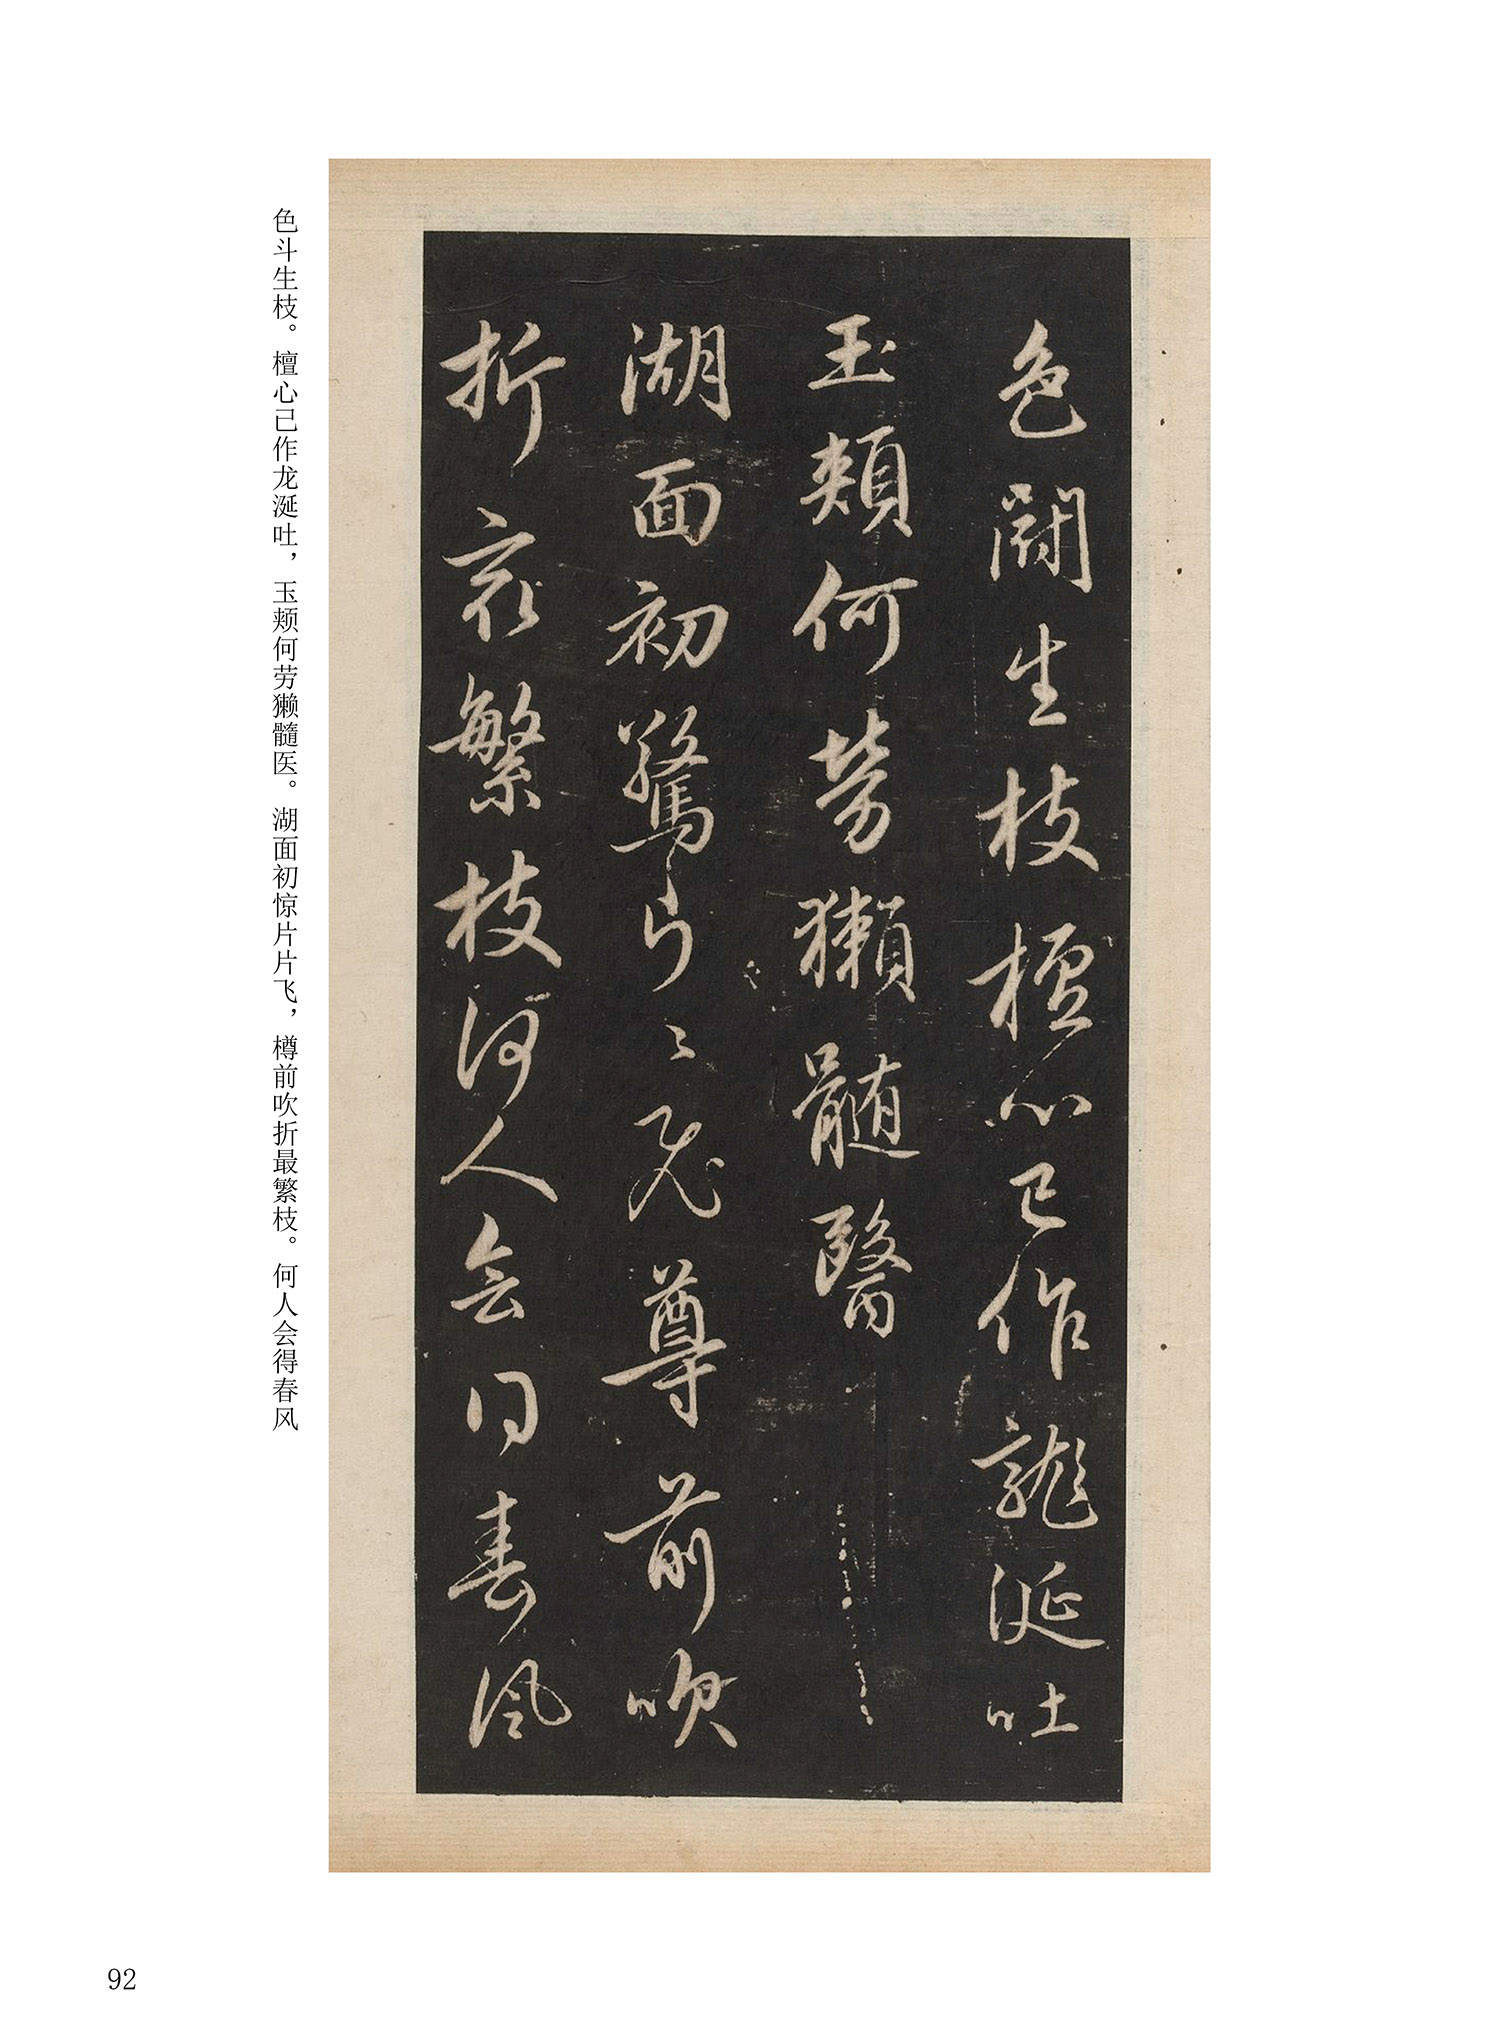 色鬭生枝檀心已作龍涎吐
玉頰何勞獺髓醫
湖面初驚片〻飛尊前吹
折最繁枝何人会得春风
色斗生枝。檀心已作龙涎吐，玉颊何劳獭髓医。湖面初惊片片飞，樽前吹折最繁枝。何人会得春风
92